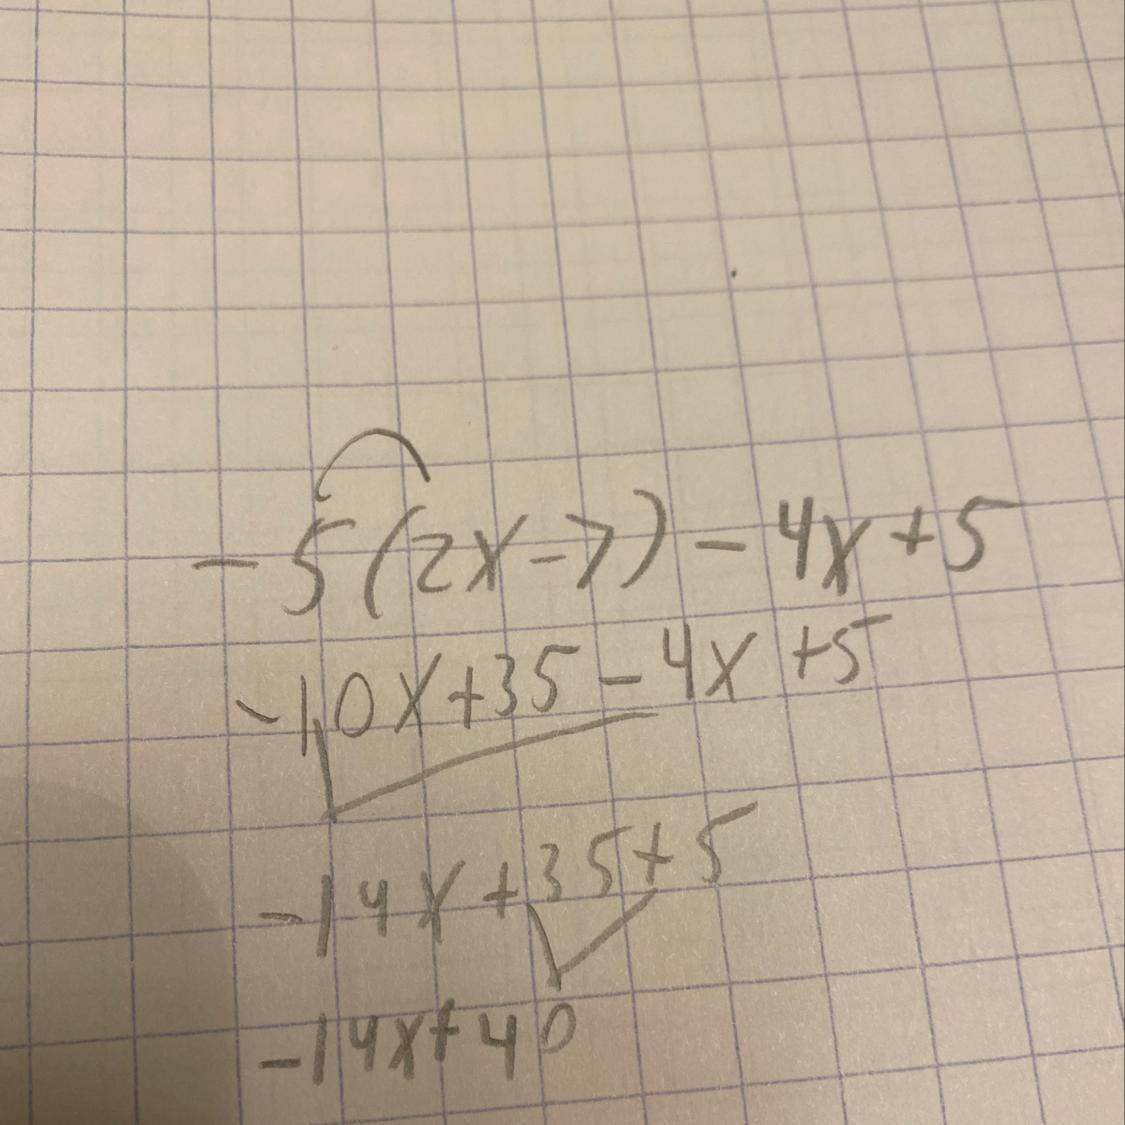 -5(2x-7)-4x+5
-10x+35-4x+5
-14x+35+5
-14x+40